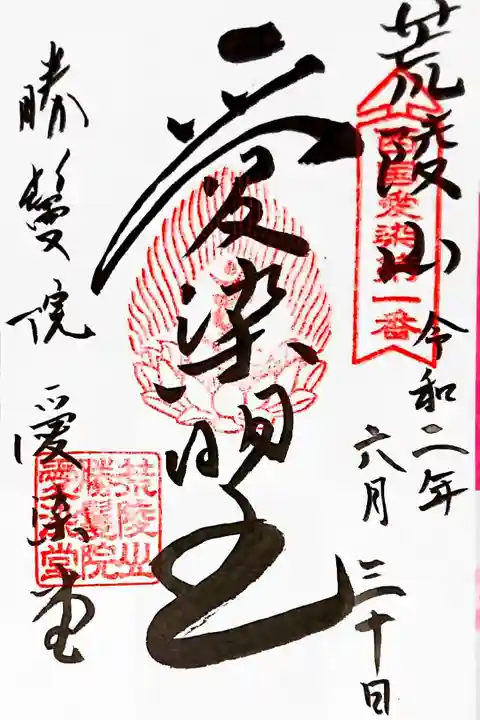 荒陵山
西国愛染第一番
令和二年
六月三十日
愛染明王
勝鬘院 愛染堂
荒陵山
勝鬘院
愛染堂